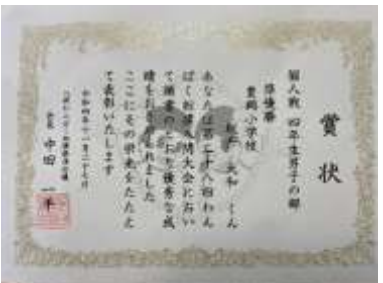 賞状
個人戦 四年生男子の部
準優勝
豊岡小学校
大和 くん
あなたは第三十八回わん
ぱく相撲入間大会におい
て頭書のとおり優秀な成
績をおさめられました
ここにその栄光をたたえ
て表彰いたします
令和四年十一月二十七日
中田 一平